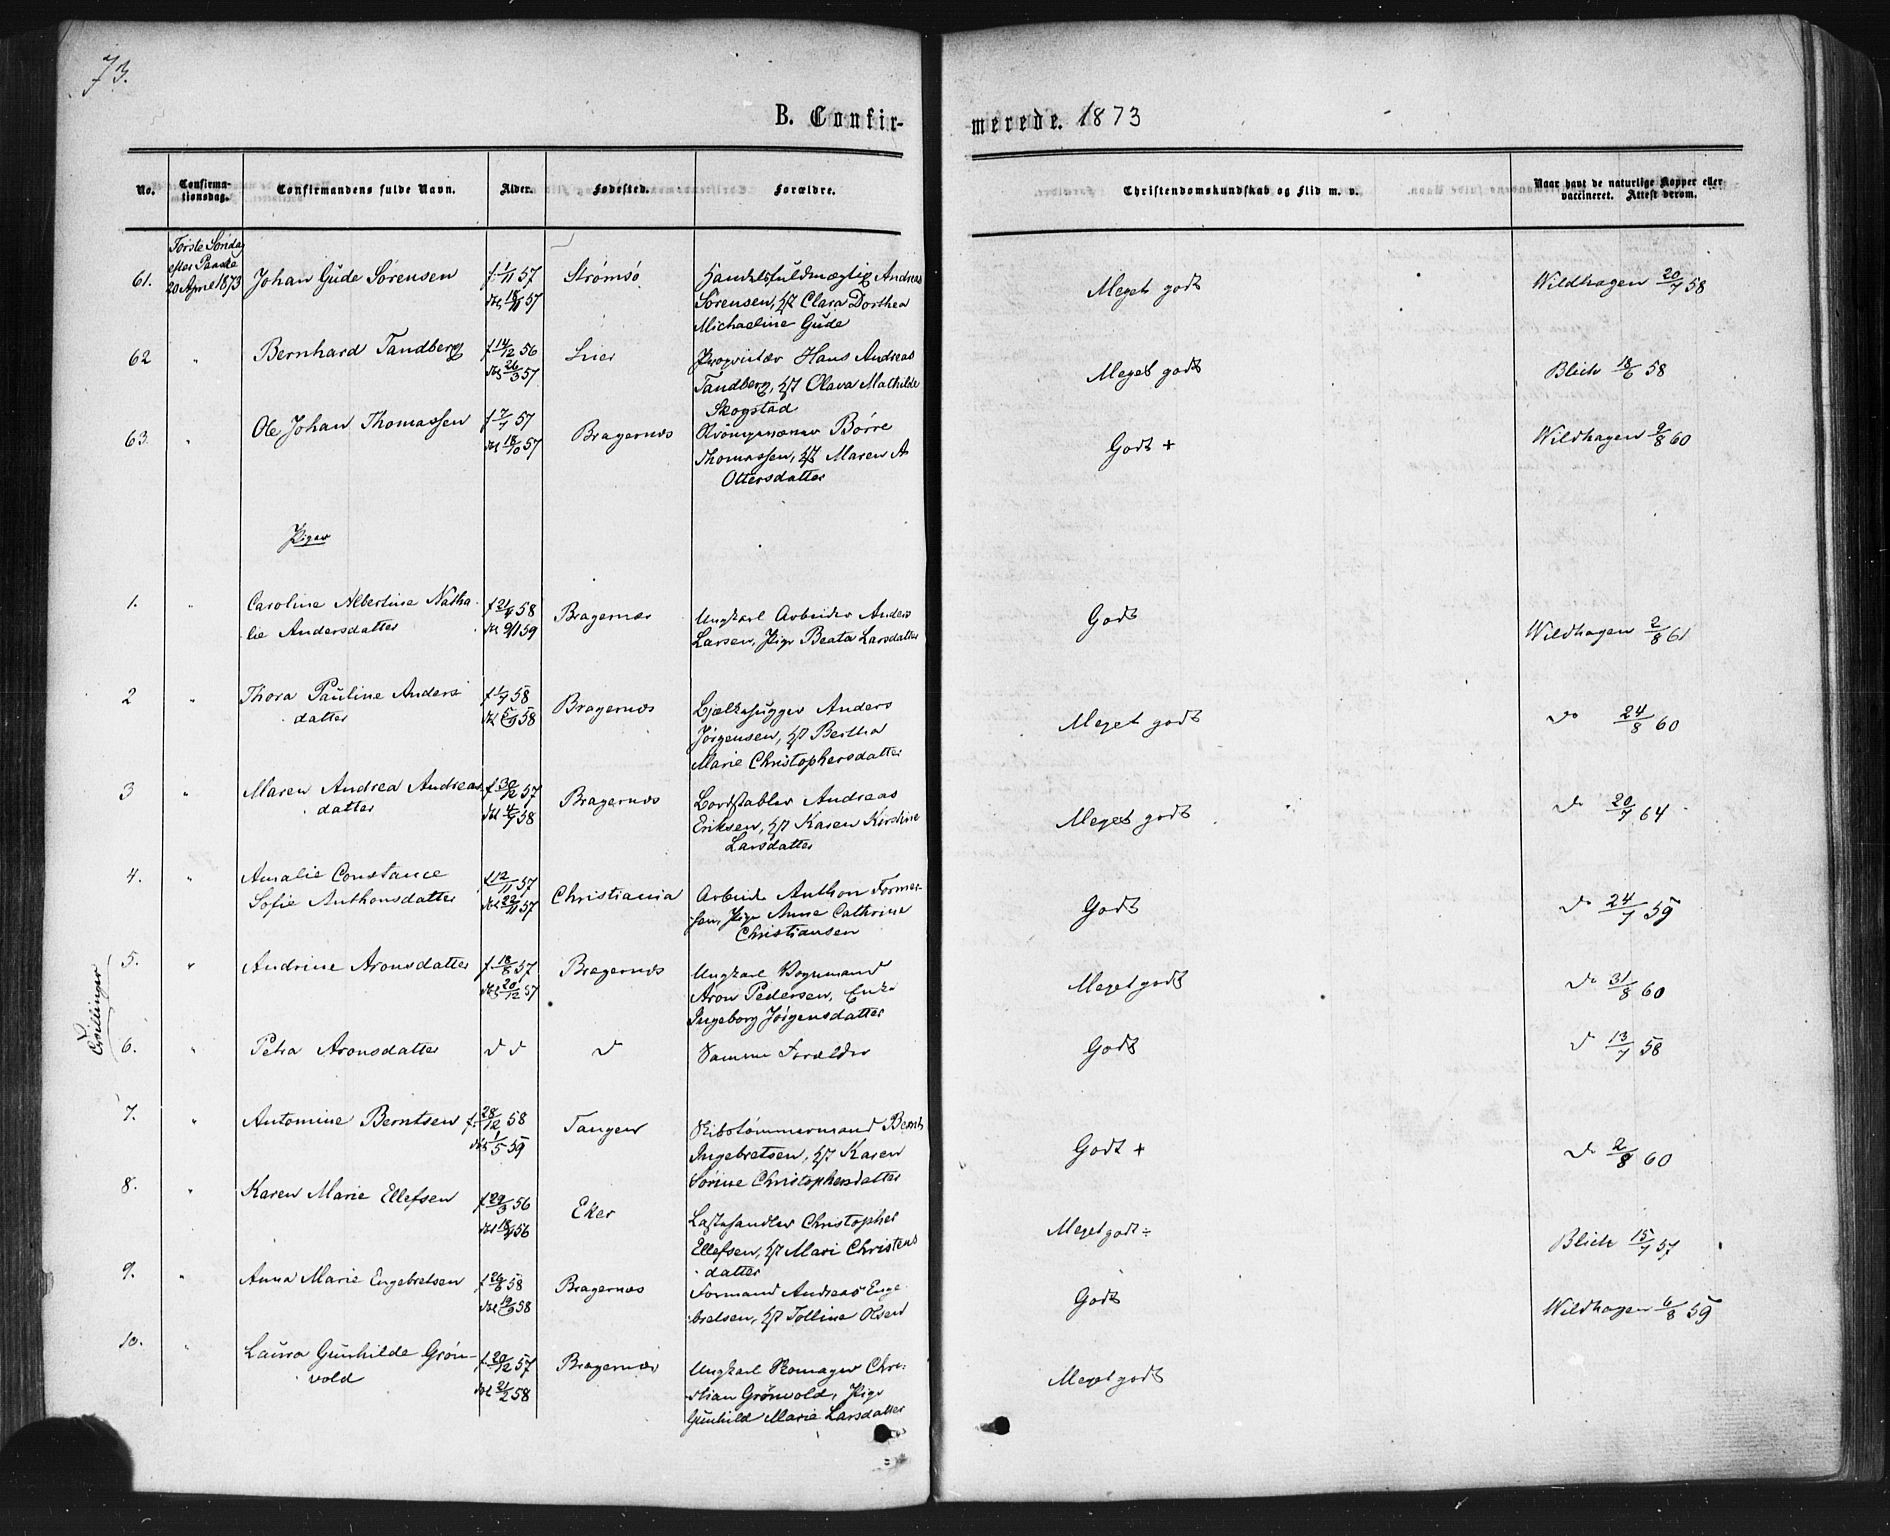 73.
B. Confir-
merede. 1873
No.
Confirma-
tionsdag.
Confirmandens fulde Navn.
Alder.
Fødested.
Forældre.
Christendomskundskab og Flid m. v.
Naar havt de naturlige Kopper eller
vaccineret. Attest derom.
Første Søndag
efter Paaske
20 April 1873
61. Johan Gude Sørensen f. 1/11 57 Strømsø Handelsfuldmægtig Andreas Meget godt Wildhagen 20/7 58
57 Sørensen, Clara Dorthea
Michaeline Gude
62 " Bernhard Tandberg f 14/12 56 Lier Proprietær Hans Andreas Meget godt Blich 18/6 58
26/3 57 Tandberg, Olava Mathilde
Skogstad
63. " Ole Johan Thomassen f 7/7 57 Bragernæs Børre Godt + Wildhagen 9/8 60
18/10 57 Thomassen, Maren A
Ottersdatter
Piger
1. " Caroline Albertine Natha- 58 Bragernæs Ungkarl Arbeider Anders Godt Wildhagen 2/8 61
lie Andersdatter 59 Larsen, Pige Beata Larsdatter
2 " Thora Pauline Anders 58 Bragernæs Bjelkehugger Anders Meget godt Do 24/8 60
datter 58 Jørgensen, Bertha
Marie Christophersdatter
3 " Maren Andrea Andreas f 30/12 57 Bragernæs Bordstabler Andreas Meget godt Do 20/7 64
datter 58 Eriksen, Karen Kirstine
Larsdatter
4. " Amalie Constance f 12/11 57 Christiania Arbeider Anthon Godt Do 24/7 59
Sofie Anthonsdatter 57 Pige Anne Cathrine
Christiansen
Tvillinger
5. " Andrine Aronsdatter f. 18/8 57 Bragernæs Ungkarl Vognmand Meget godt Do 31/8 60
20/12 57 Aron Pedersen, Enke
Ingeborg Jørgensdatter
6. " Petra Aronsdatter d d d Samme Forældre Godt D 13/7 58
7. " Antomine Berntsen f. 28/12 58 Tangen Skibstømmermand Bernt Godt + Do 2/8 60
1/5 59 Ingebretsen, Karen
Sørine Christophersdatter
8. " Karen Marie Ellefsen f 29/3 56 Eker Lastehandler Christopher Meget godt ÷ Blich 15/7 57
56 Ellefsen, Mari Christens
datter
9. " Anna Marie Engebretsen 58 Bragernæs Formand Andreas Enge Godt Wildhagen 6/8 59
58 bretsen, Tolline Olsen
10. " Laura Gunhilde Grøn- f. 20/12 57 Bragernæs Ungkarl Skomager Chri- Meget godt
vold 21/2 58 stian Grønvold, Pige
Gunhild Marie Larsdatter